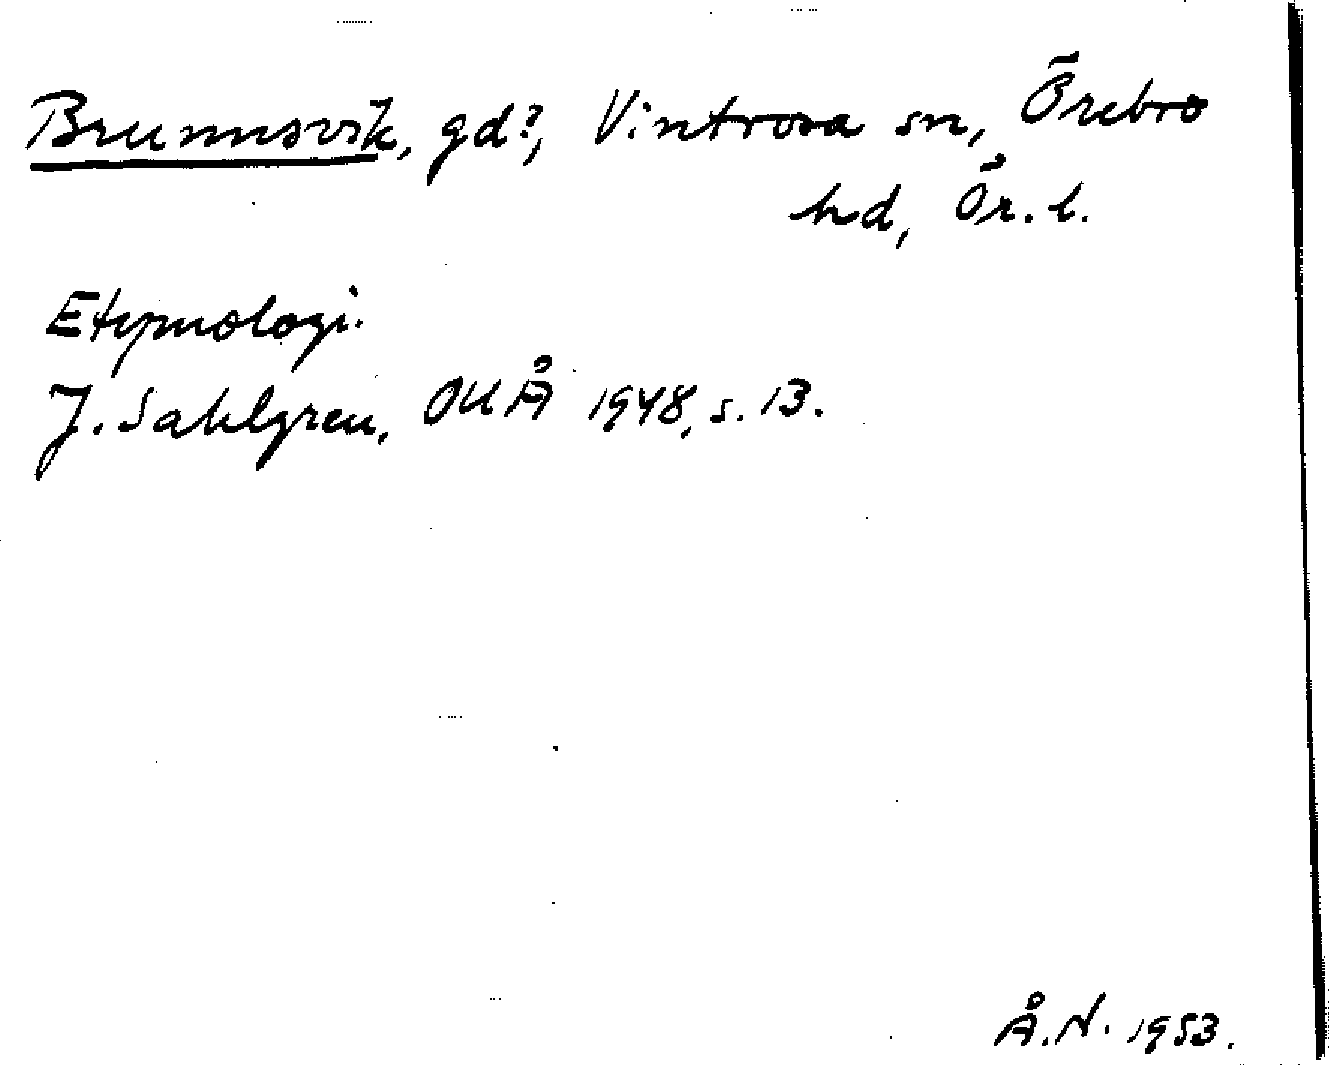 Brunnsvik, gd?, Vintrosa sn, Örebro
hd, Ör. l.
Etymologi.
J. Sahlgren, OUÅ 1948, s. 13.
Å. N. 1953.